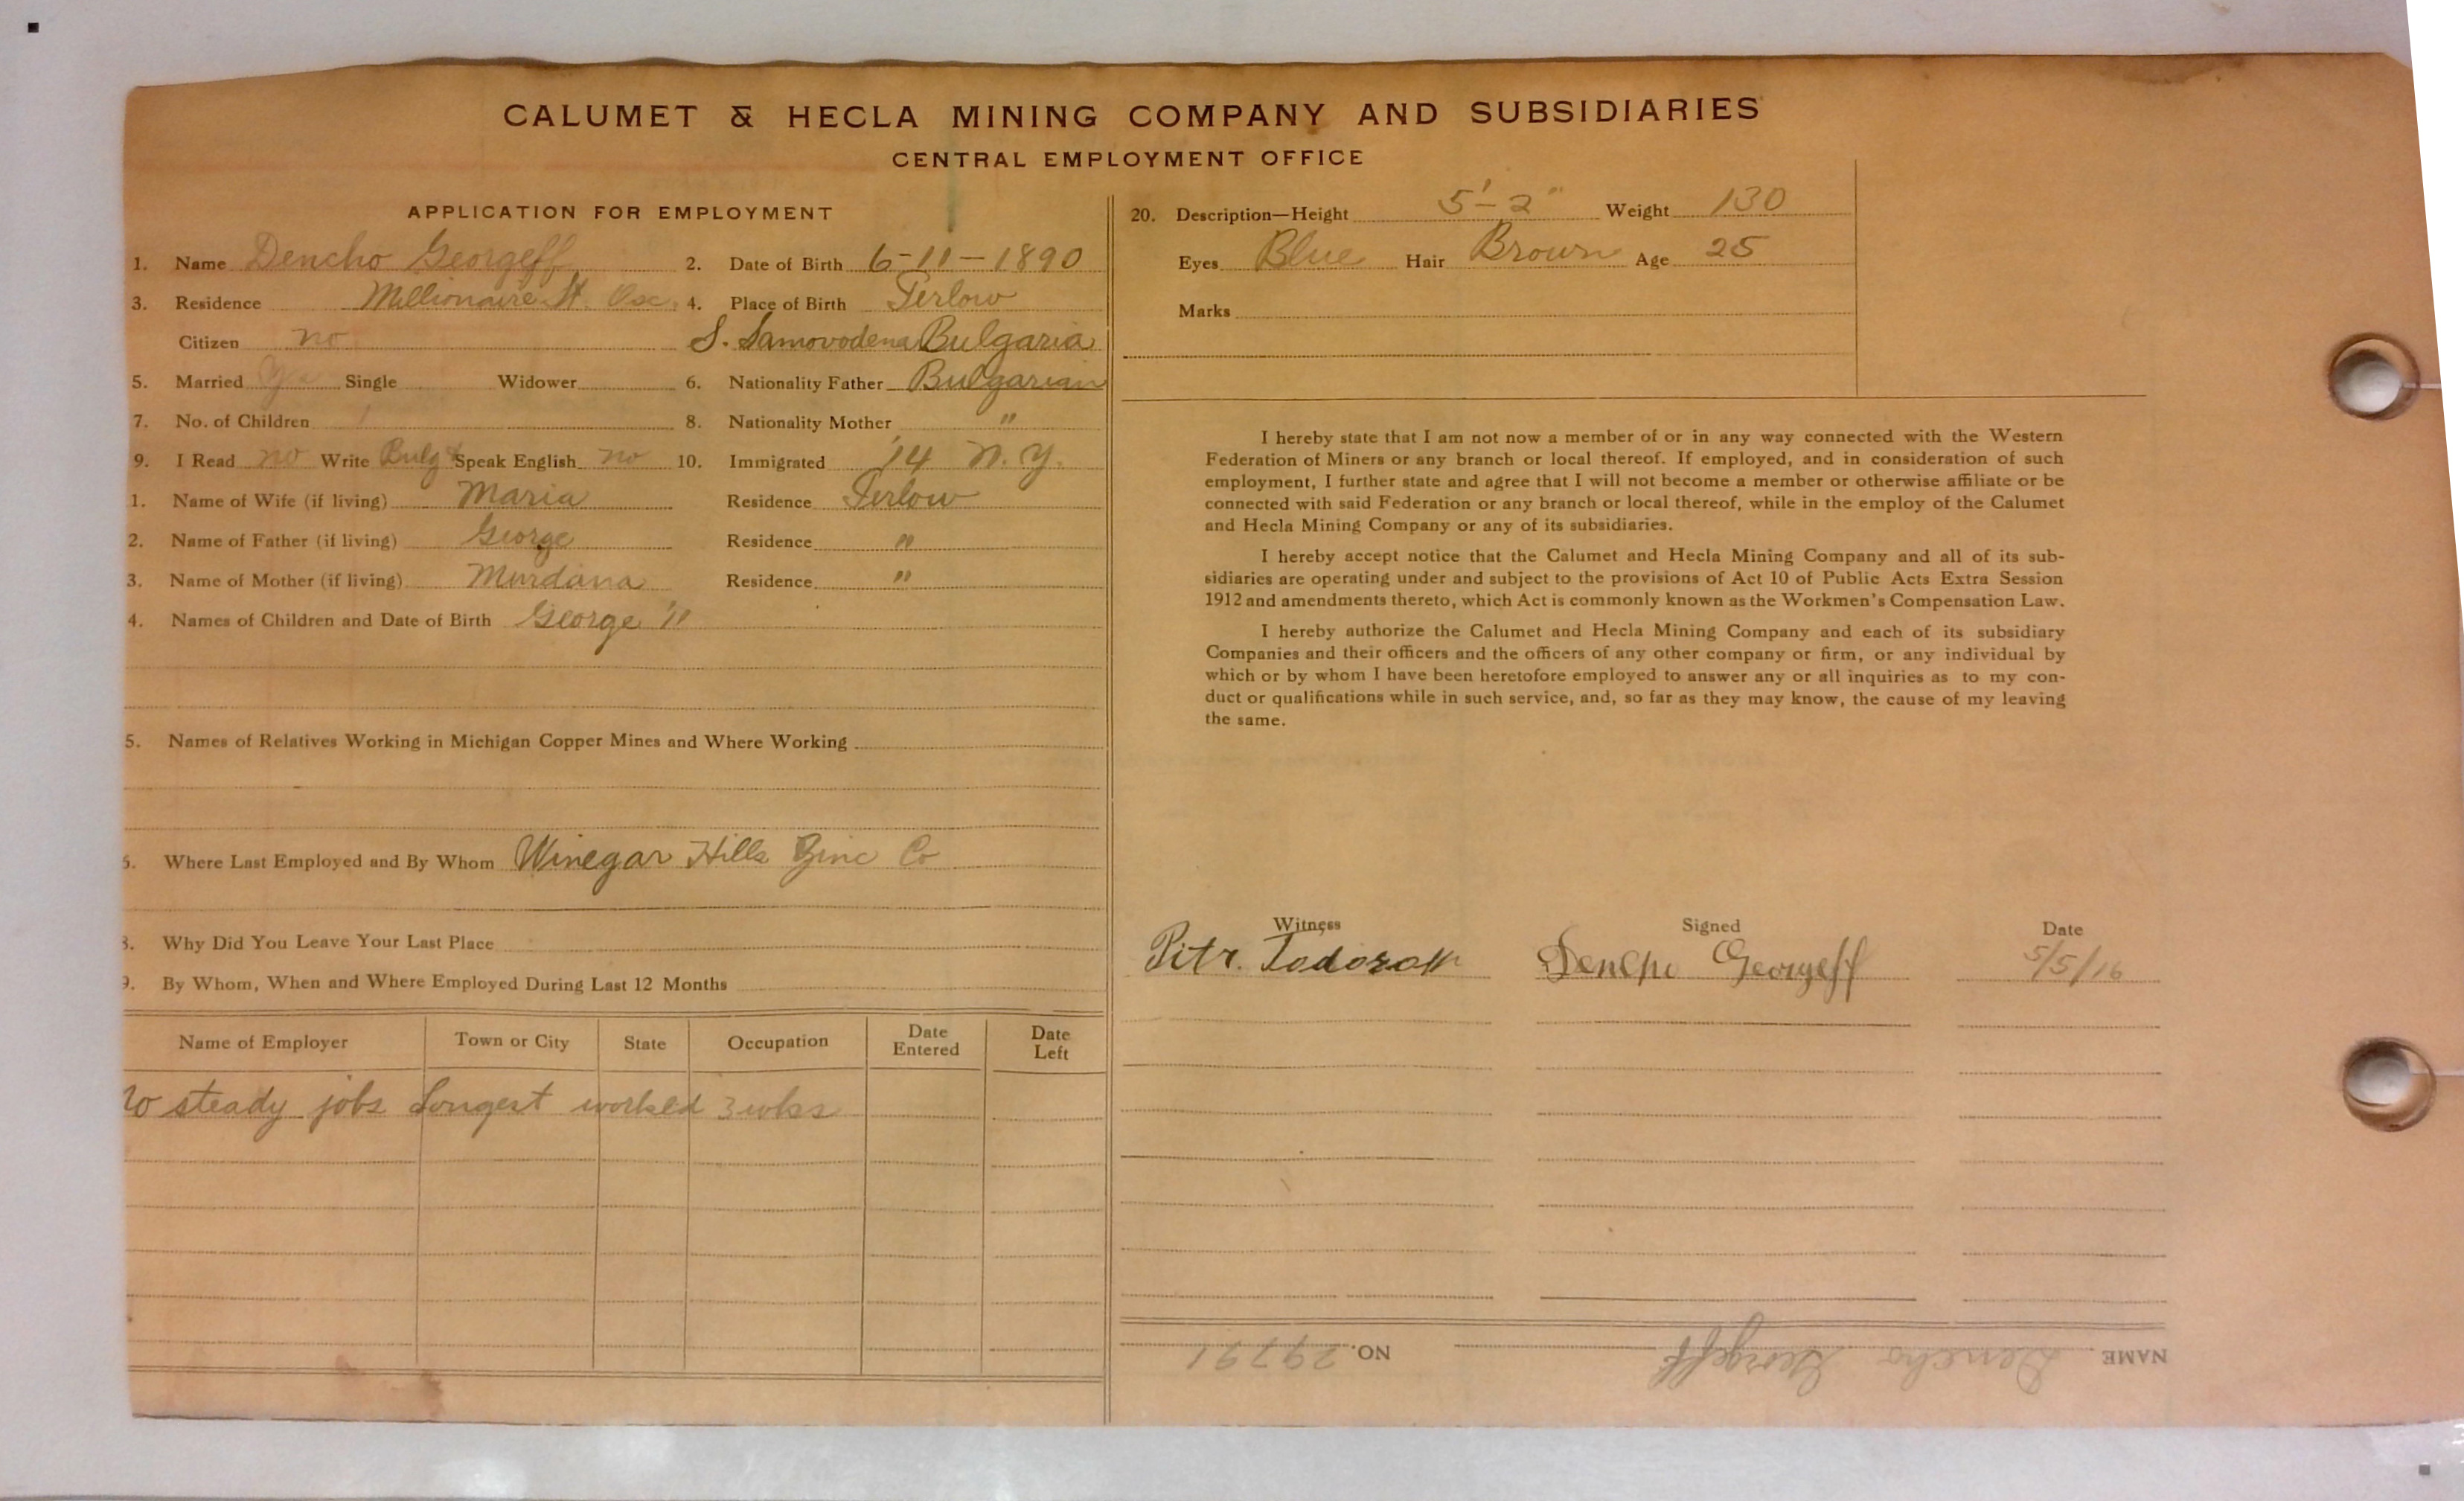 CALUMET & HECLA MINING COMPANY AND SUBSIDIARIES
CENTRAL EMPLOYMENT OFFICE
APPLICATION FOR EMPLOYMENT
1. Name Dencho Georgeff 2. Date of Birth 6-11-1890
3. Residence Millionaire St. Osc. 4. Place of Birth Terlow
Citizen no S. Samovodena Bulgaria
5. Married Single Widower 6. Nationality Father Bulgarian
7. No. of Children 1 8. Nationality Mother "
9. I Read no Write Bulg Speak English no 10. Immigrated '14 N.Y.
1. Name of Wife (if living) Maria Residence Terlow
2. Name of Father (if living) George Residence "
3. Name of Mother (if living) Murdana Residence "
4. Names of Children and Date of Birth George '11
5. Names of Relatives Working in Michigan Copper Mines and Where Working
6. Where Last Employed and By Whom Winegar Hills Zinc Co
8. Why Did You Leave Your Last Place
9. By Whom, When and Where Employed During Last 12 Months
Name of Employer Town or City State Occupation Date Entered Date Left
No steady jobs Longest worked 3 wks
20. Description—Height 5'-2" Weight 130
Eyes Blue Hair Brown Age 25
Marks
I hereby state that I am not now a member of or in any way connected with the Western
Federation of Miners or any branch or local thereof. If employed, and in consideration of such
employment, I further state and agree that I will not become a member or otherwise affiliate or be
connected with said Federation or any branch or local thereof, while in the employ of the Calumet
and Hecla Mining Company or any of its subsidiaries.
I hereby accept notice that the Calumet and Hecla Mining Company and all of its sub-
sidiaries are operating under and subject to the provisions of Act 10 of Public Acts Extra Session
1912 and amendments thereto, which Act is commonly known as the Workmen's Compensation Law.
I hereby authorize the Calumet and Hecla Mining Company and each of its subsidiary
Companies and their officers and the officers of any other company or firm, or any individual by
which or by whom I have been heretofore employed to answer any or all inquiries as to my con-
duct or qualifications while in such service, and, so far as they may know, the cause of my leaving
the same.
Witness Signed Date
Pitr. Todoroff Dencho Georgeff 5/5/16
NAME Dencho Georgeff NO. 29791